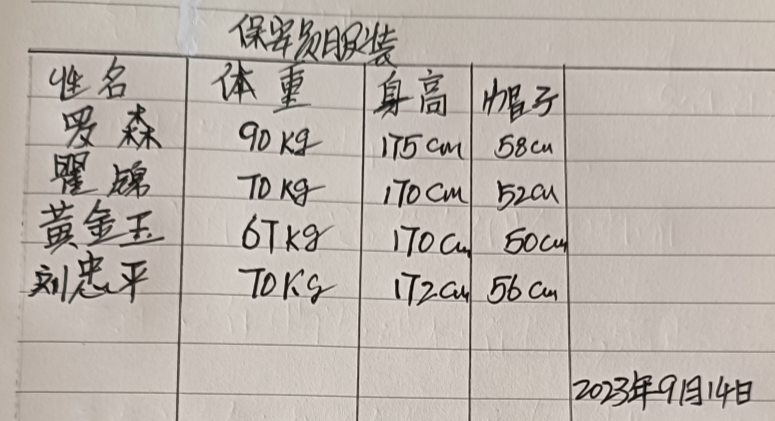 保安员服装
姓名 体重 身高 帽子
罗森 90kg 175cm 58cm
瞿锦 70kg 170cm 52cm
黄金玉 67kg 170cm 50cm
刘忠平 70kg 172cm 56cm
2023年9月14日